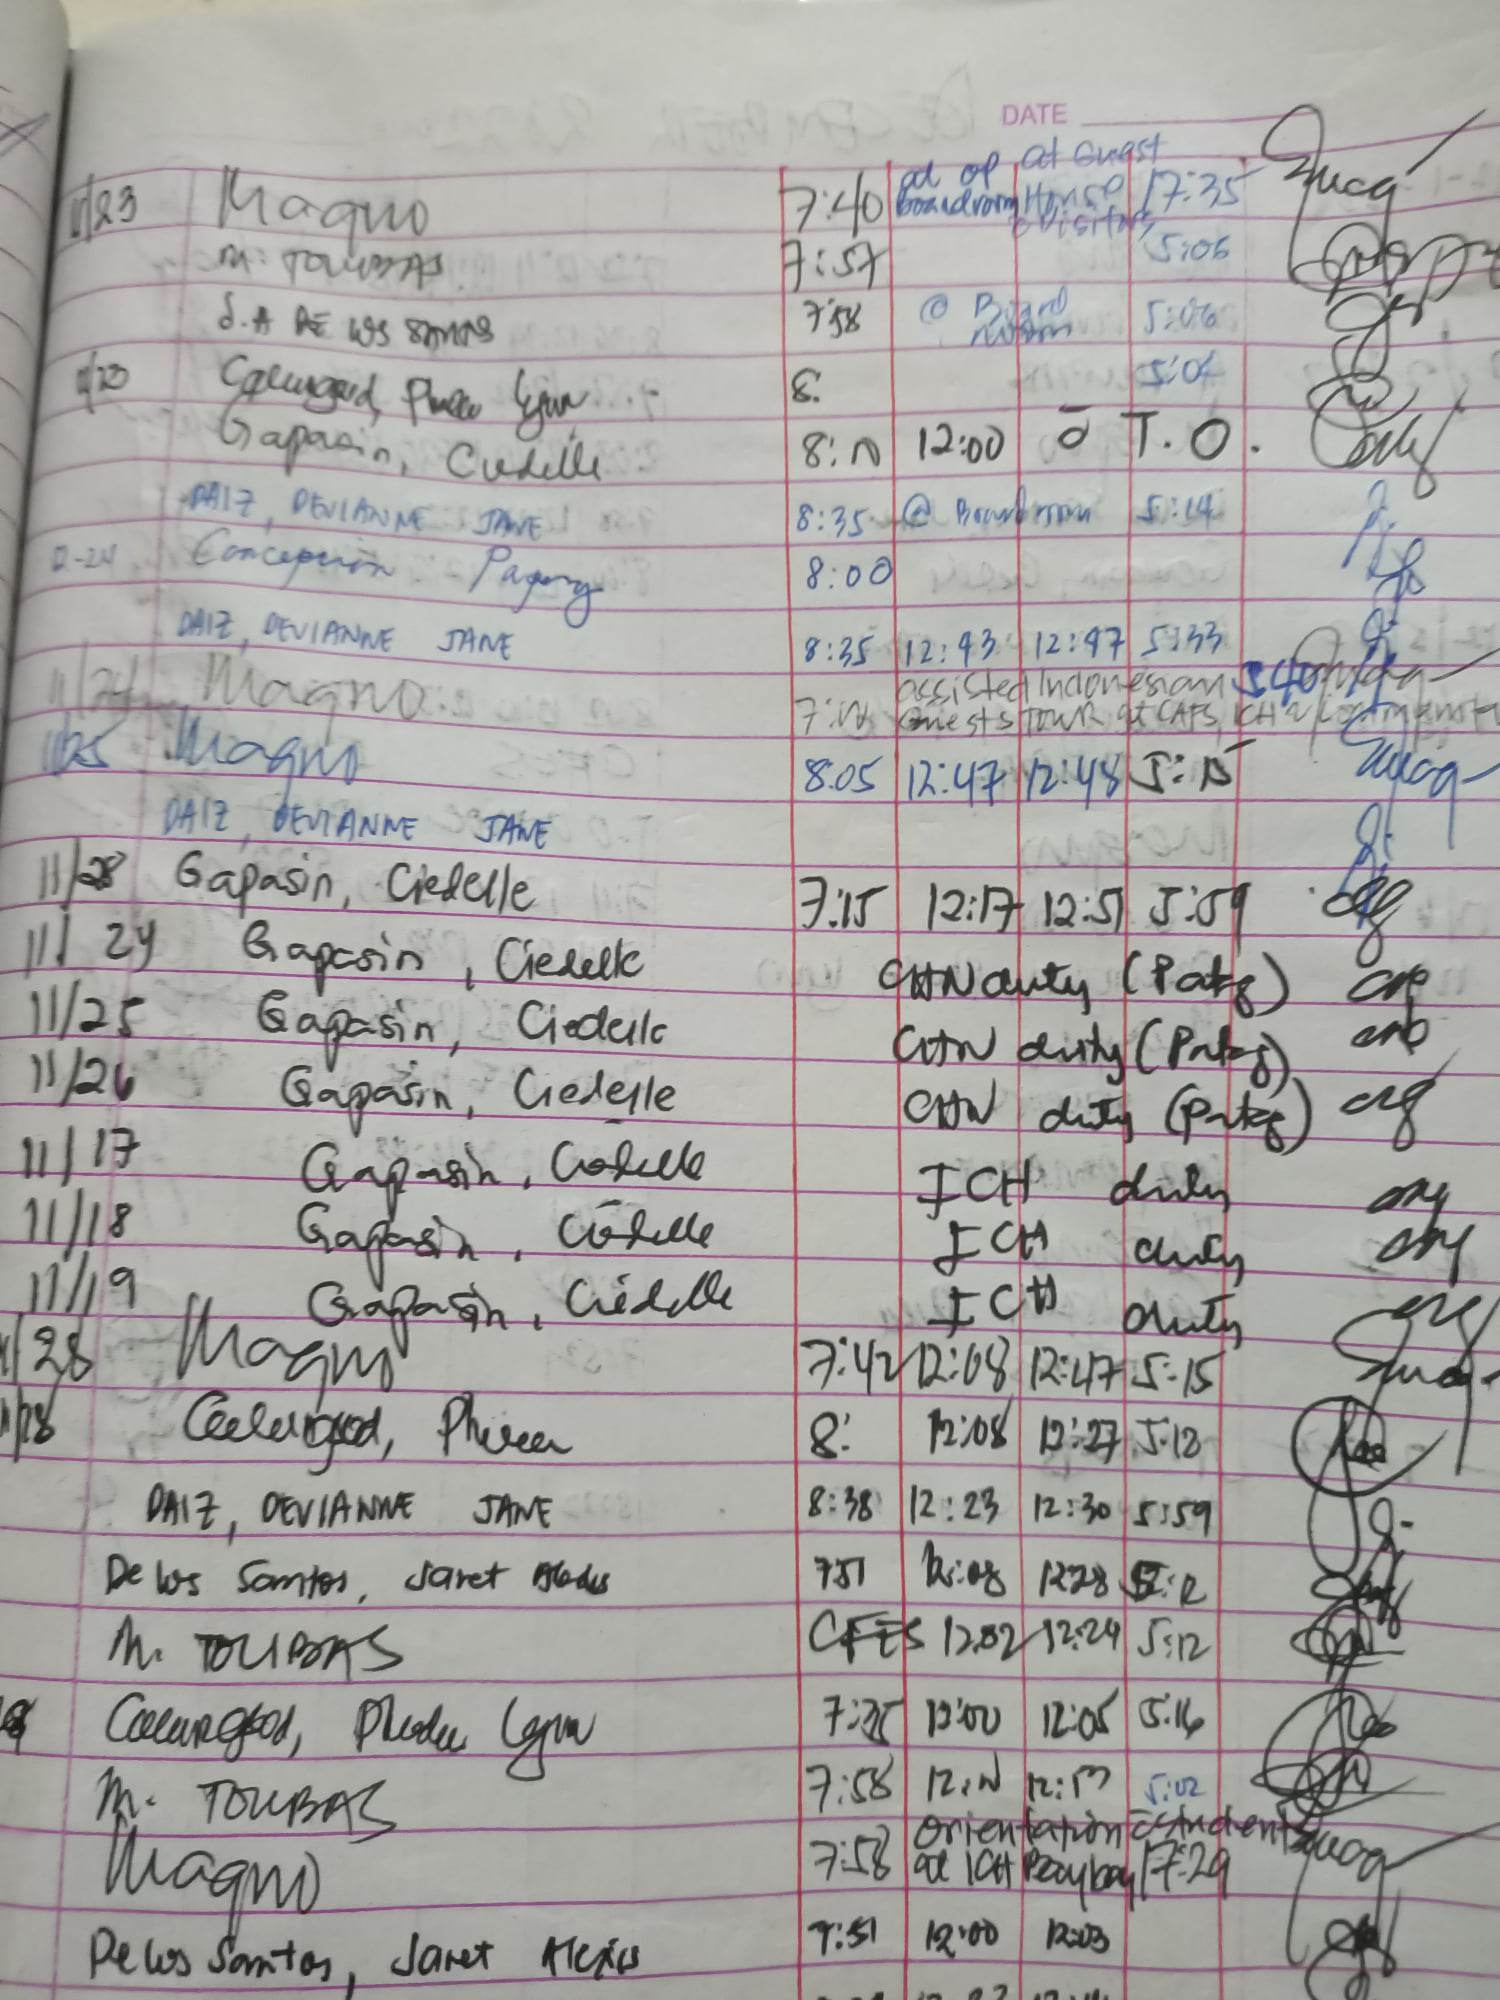 DATE
11/23 Magno 7:40 at op Boardroom at Guest House c visitors 17:35
M. TOLIBAS 7:57 5:05
J.A DE LOS SANTOS 7:58 @ Board room 5:06
11/23 8: 5:04
Gapasin, Ciedelle 8:10 12:00 ō T.O.
DAIZ, DEVIANNE JANE 8:35 @ Boardroom 5:14
11-24 Concepcion 8:00
DAIZ, DEVIANNE JANE 8:35 12:43 12:47 5:33
11/24 Magno assisted Indonesian 5:40
Guests TOUR at CAFS, ICH
11/25 Magno 8:05 12:47 12:48 5:15
DAIZ, DEVIANNE JANE
11/28 Gapasin, Ciedelle 7:15 12:17 12:51 5:59
11/24 Gapasin, Ciedelle CHN duty (Patag)
11/25 Gapasin, Ciedelle CHN duty (Patag)
11/26 Gapasin, Ciedelle CHN duty (Patag)
11/17 Gapasin, Ciedelle ICH duty
11/18 Gapasin, Ciedelle ICH duty
11/19 Gapasin, Ciedelle ICH duty
11/28 Magno 7:42 12:08 12:47 5:15
11/28 8: 12:08 12:27 5:12
DAIZ, DEVIANNE JANE 8:38 12:23 12:30 5:59
De los Santos, Jaret Alexis 7:51 12:08 12:28 5:12
M. TOLIBAS CFES 12:02 12:24 5:12
7:35 12:00 12:05 5:16
M. TOLIBAS 7:58 12:N 12:13 5:02
Magno 7:58 orientation c students at ICH Baybay 17:29
De los Santos, Jaret Alexis 7:51 12:00 12:03